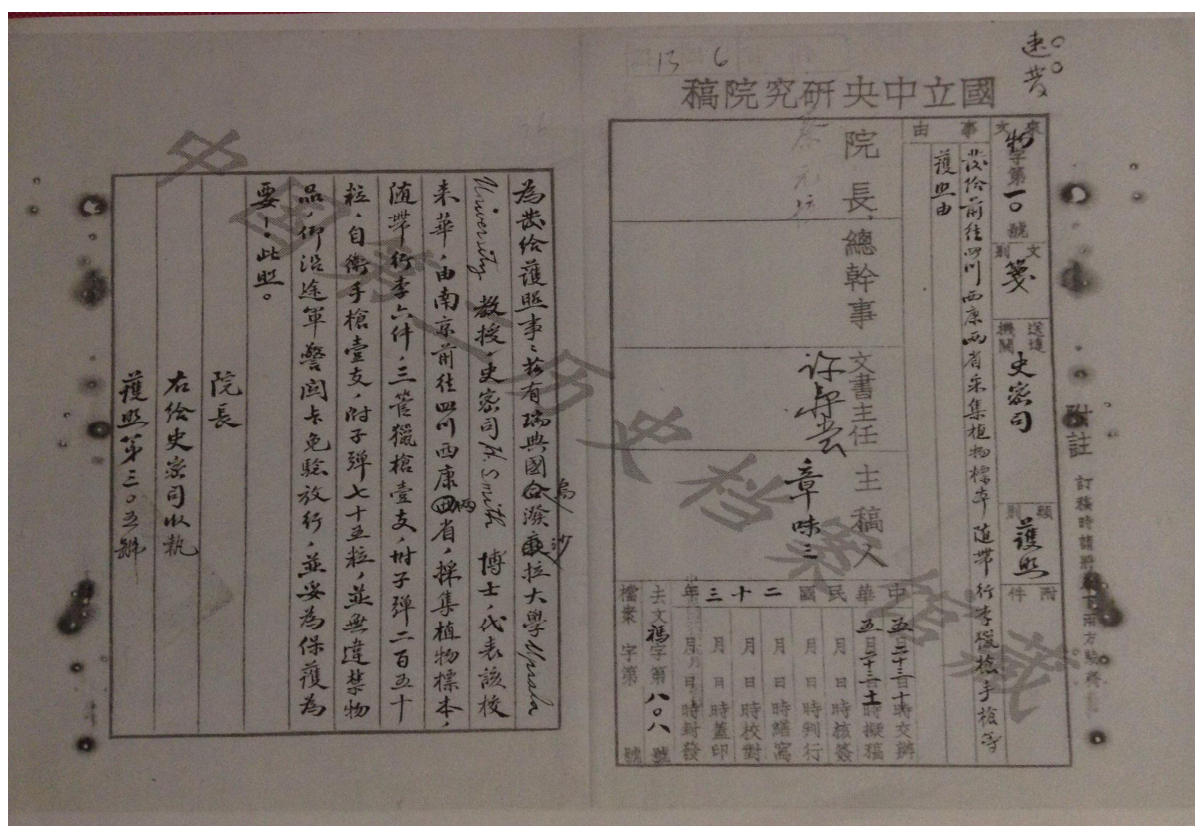 速發
13 6
國立中央研究院稿
來文 物字第一〇號
文別 箋
送達機關 史密司
類別 護照
附件
事由
發給前往四川西康兩省采集植物標本隨帶行李獵槍手槍等
護照由
院長 蔡元培
總幹事
文書主任 許壽裳
主稿人 章味三
中華民國二十三年
五月二十三日十時交辦
五月二十三日十一時擬稿
月 日 時核簽
月 日 時判行
月 日 時繕寫
月 日 時校對
月 日 時蓋印
月 日 時封發
去文 字第八〇八號
檔案 字第 號
附註
為發給護照事:茲有瑞典國烏潑沙拉大學Upsala
University 教授,史密司H. Smith 博士,代表該校
來華,由南京前往四川西康兩省,採集植物標本,
隨帶行李六件,三管獵槍壹支,附子彈二百五十
粒,自衛手槍壹支,附子彈七十五粒,並無違禁物
品,仰沿途軍警関卡免驗放行,並妥為保護為
要!此照。
院長
右給史密司收執
護照第三〇五號
中国第二历史档案馆藏